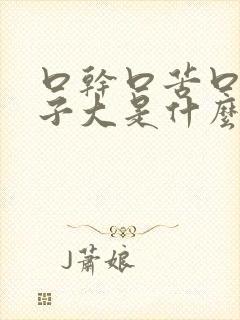 口幹口苦口
子大是什麼
J蕭娘